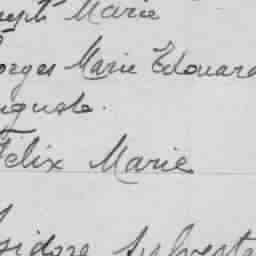 Joseph Marie
Georges Marie Edouard
Auguste.
Félix Marie
Isidore Sylvestre